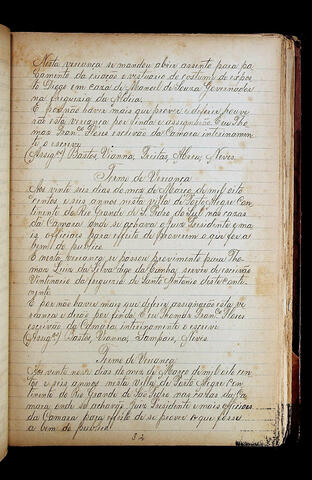 Nesta vereança se mandou abrir assento para pa
gamento da criação e vestuario de costume do expos
to Diogo em caza de Manoel de Souza Governador
na freguezia da Aldeia.
E por não haver mais que prover e deferir houve
rão esta vereança por finda e assignarão Eu Tho
maz Franco Flores escrivão da Camara interinamen
te a escrevi
(Assigo) Bastos, Vianna, Freitas, Abreu, Neves.
Termo de Vereança
Aos vinte seis dias do mez de Março de mil oito
centos e seis annos nesta villa de Porto Alegre Con
tinente do Rio Grande de S. Pedro do Sul nas cazas
da Camara onde se achava o Juiz Presidente e ma
is officiaes para effeito de proverem o que fora
bem do publico.
E nesta vereança se passou provimento para Tho
maz Luiz da Silva digo da Cunha servir de escrivão
Vintenario da freguezia de Santo Antonio deste Conti
nente
E por não haver mais que deferir assignarão esta ve
reança e dirão por finda, Eu Thomaz Franco Flores
escrivão da Camara interinamente a escrevi
(Assigo) Bastos, Vianna, Sampaio, Neves.
Termo de Vereança
Aos vinte nove dias do mez de Março de mil oito cen
tos e seis annos nesta villa de Porto Alegre Con
tinente do Rio Grande de São Pedro nas cazas da Ca
mara onde se achavão Juiz Presidente e mais officiaes
da Camara para effeito de se prover o que fosse
a bem do publico
82